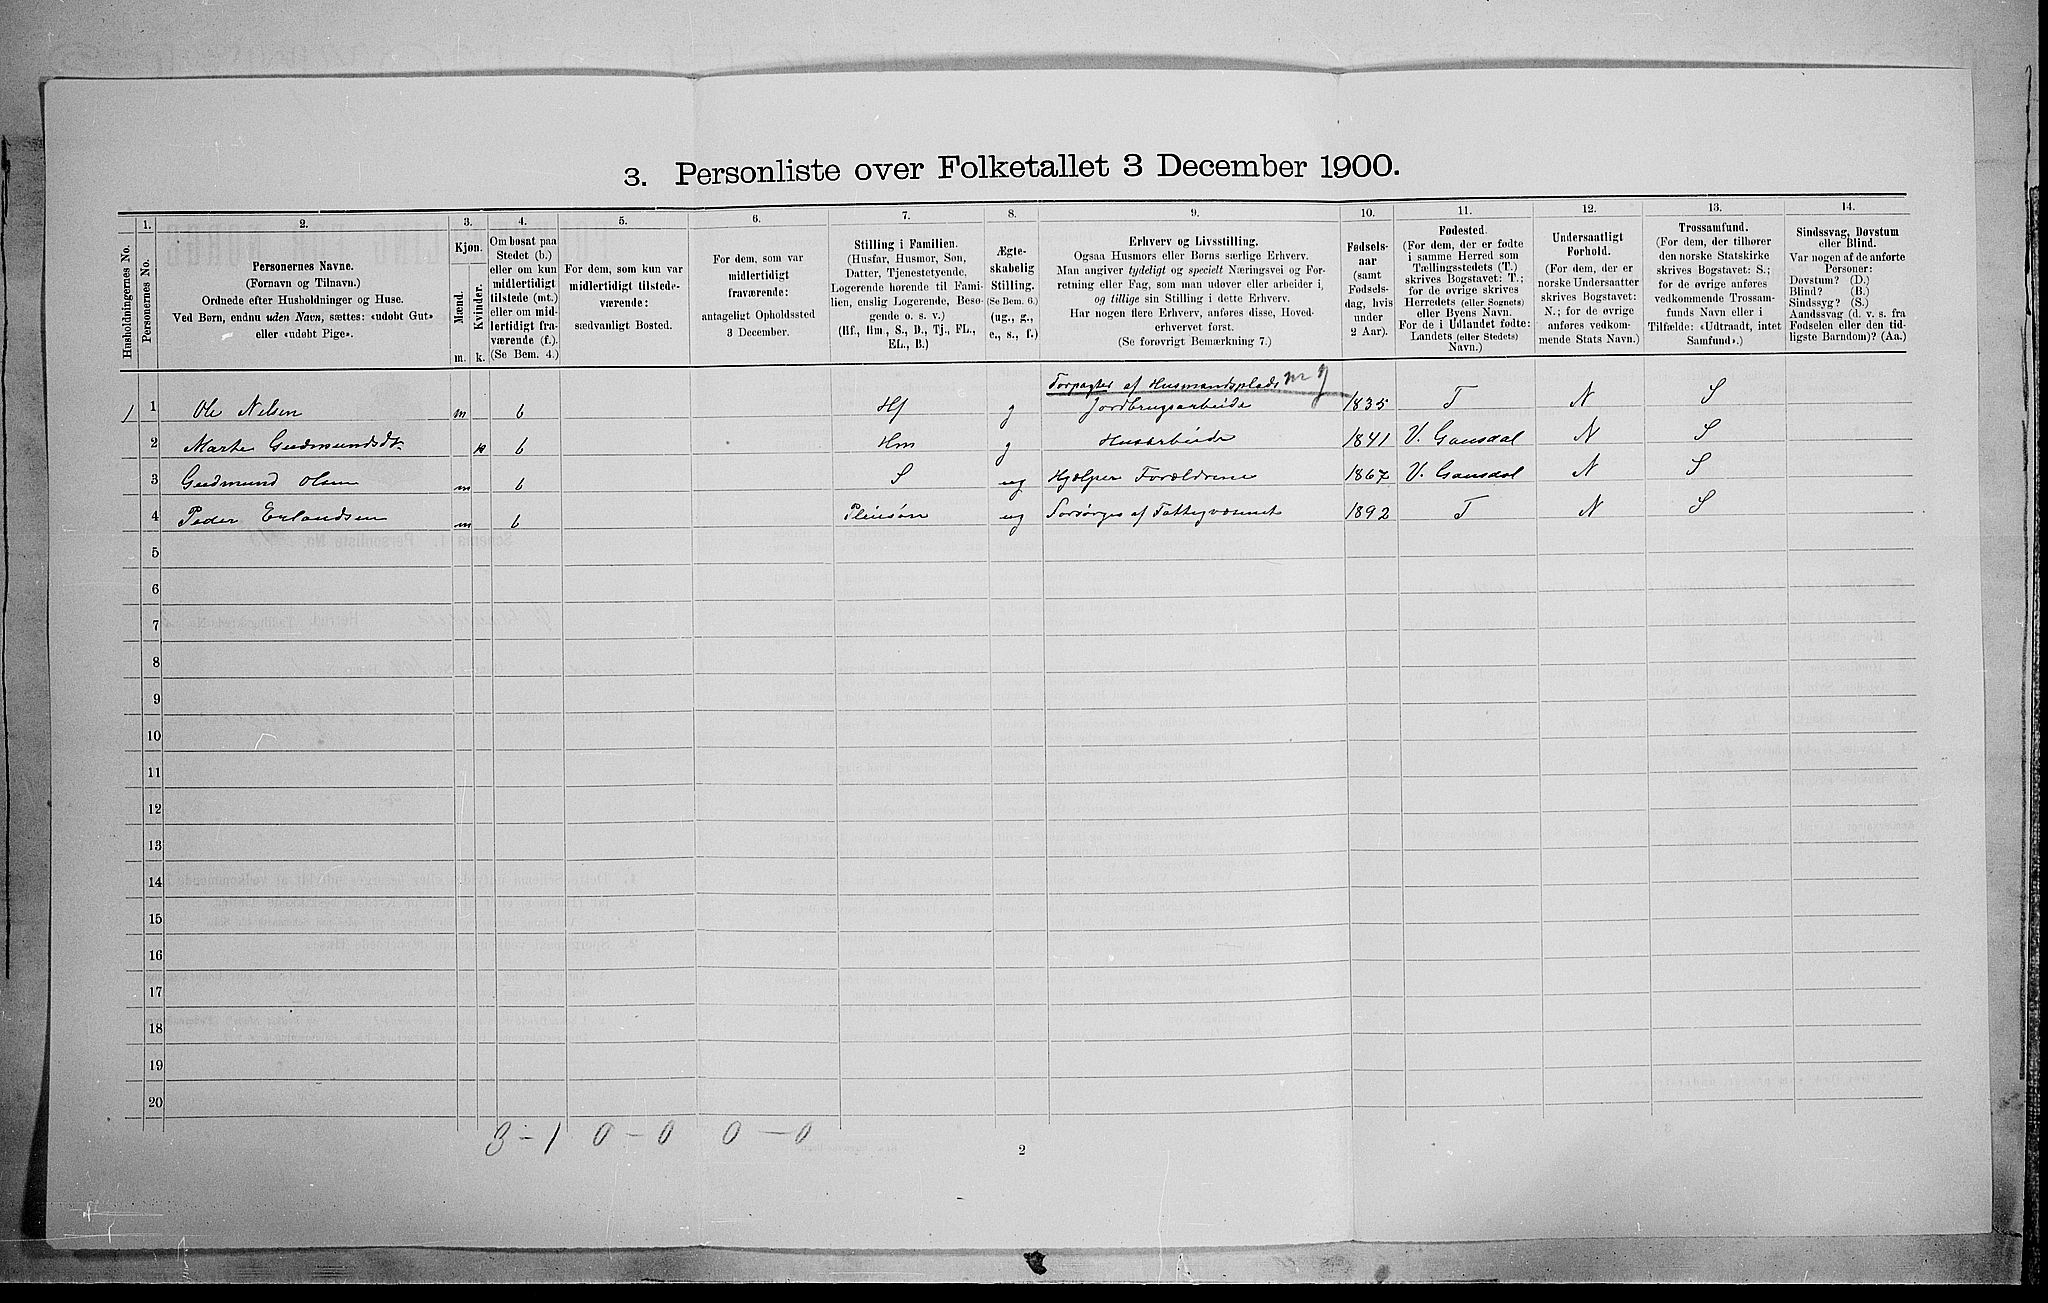 3. Personliste over Folketallet 3 December 1900.
Husholdningernes No.
1.
Personernes No.
2.
Personernes Navne.
(Fornavn og Tilnavn.)
Ordnede efter Husholdninger og Huse.
Ved Børn, endnu uden Navn, sættes: «udøbt Gut»
eller «udøbt Pige».
3.
Kjøn.
Mænd.
Kvinder.
m. k.
4.
Om bosat paa
Stedet (b.)
eller om kun
midlertidigt
tilstede (mt.)
eller om mid-
lertidigt fra-
værende (f.).
(Se Bem. 4.)
5.
For dem, som kun var
midlertidigt tilstede-
værende:
sædvanligt Bosted.
6.
For dem, som var
midlertidigt
fraværende:
antageligt Opholdssted
3 December.
7.
Stilling i Familien.
(Husfar, Husmor, Søn,
Datter, Tjenestetyende,
Logerende hørende til Fami-
lien, enslig Logerende, Besø-
gende o. s. v.)
(Hf., Hm., S., D., Tj., FL.,
EL., B.)
8.
Ægte-
skabelig
Stilling.
(Se Bem. 6.)
(ug., g.,
e., s., f.)
9.
Erhverv og Livsstilling.
Ogsaa Husmors eller Børns særlige Erhverv.
Man angiver tydeligt og specielt Næringsvei og For-
retning eller Fag, som man udøver eller arbeider i,
og tillige sin Stilling i dette Erhverv.
Har nogen flere Erhverv, anføres disse, Hoved-
erhvervet først.
(Se forøvrigt Bemærkning 7.)
10.
Fødsels-
aar
(samt
Fødsels-
dag, hvis
under
2 Aar).
11.
Fødested.
(For dem, der er fødte
i samme Herred som
Tællingsstedets (T.)
skrives Bogstavet: T.;
for de øvrige skrives
Herredets (eller Sognets)
eller Byens Navn.
For de i Udlandet fødte:
Landets (eller Stedets)
Navn.)
12.
Undersaatligt
Forhold.
(For dem, der er
norske Undersaatter
skrives Bogstavet:
N.; for de øvrige
anføres vedkom-
mende Stats Navn.)
13.
Trossamfund.
(For dem, der tilhører
den norske Statskirke
skrives Bogstavet: S.;
for de øvrige anføres
vedkommende Trossam-
funds Navn eller i
Tilfælde: «Udtraadt, intet
Samfund».)
14.
Sindssvag, Døvstum
eller Blind.
Var nogen af de anførte
Personer:
Døvstum? (D.)
Blind? (B.)
Sindssyg? (S.)
Aandssvag (d. v. s. fra
Fødselen eller den tid-
ligste Barndom)? (Aa.)
Forpagter af Husmandsplads
1 1 Ole Nilsen m b Hf g Jordbrugsarbeide 1835 T N S
2 Marte Gudmundsdt. k b Hm g Husarbeide 1841 V. Gausdal N S
3 Gudmund Olsen m b S ug Hjælper Forældrene 1867 V. Gausdal N S
4 Peder Erlandsen m b Pleiesøn ug Forsørges af Fattigvæsenet 1892 T N S
5
6
7
8
9
10
11
12
13
14
15
16
17
18
19
20
3 - 1 0 - 0 0 - 0
2